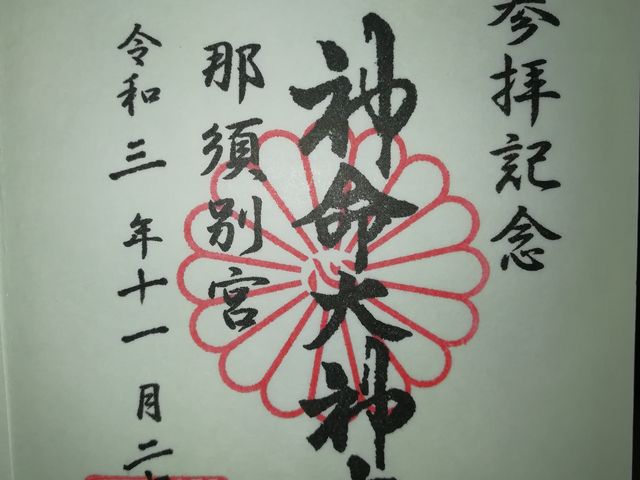 参拝記念
神命大神
那須別宮
令和三年十一月二